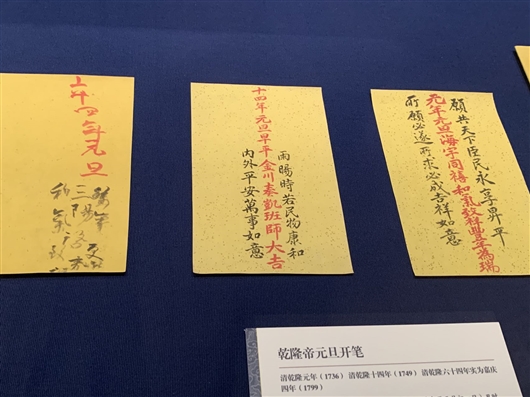 願共天下臣民永享昇平
元年元旦海宇同禧和氣致祥豐年為瑞
所願必遂所求必成吉祥如意
雨暘時若民物康和
十四年元旦早平金川奏凱班師大吉
內外平安萬事如意
四年元旦
三陽
乾隆帝元旦开笔
清乾隆元年（1736） 清乾隆十四年（1749） 清乾隆六十四年实为嘉庆
四年（1799）